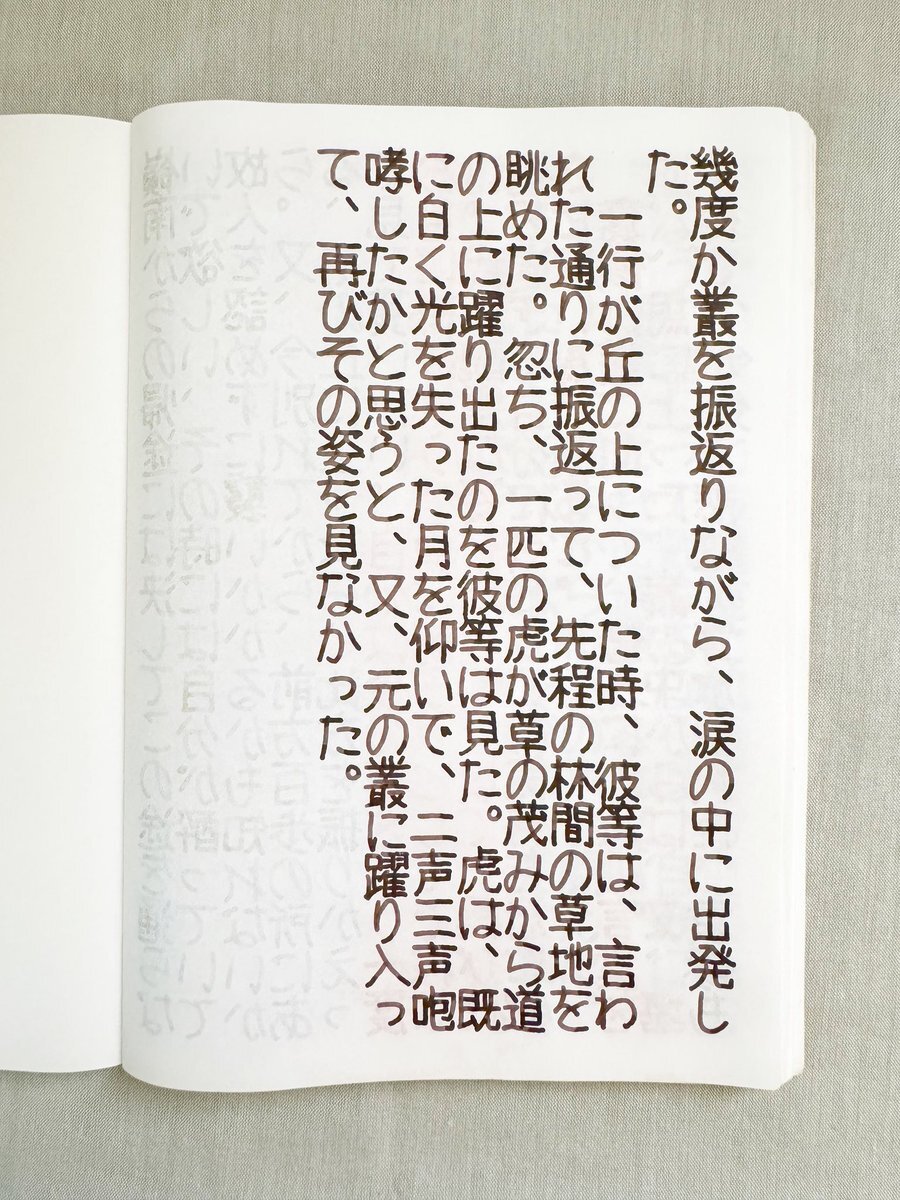 幾度か叢を振返りながら、涙の中に出発し
た。
　一行が丘の上についた時、彼等は、言わ
れた通りに振返って、先程の林間の草地を
眺めた。忽ち、一匹の虎が草の茂みから道
の上に躍り出たのを彼等は見た。虎は、既
に白く光を失った月を仰いで、二声三声咆
哮したかと思うと、又、元の叢に躍り入っ
て、再びその姿を見なかった。